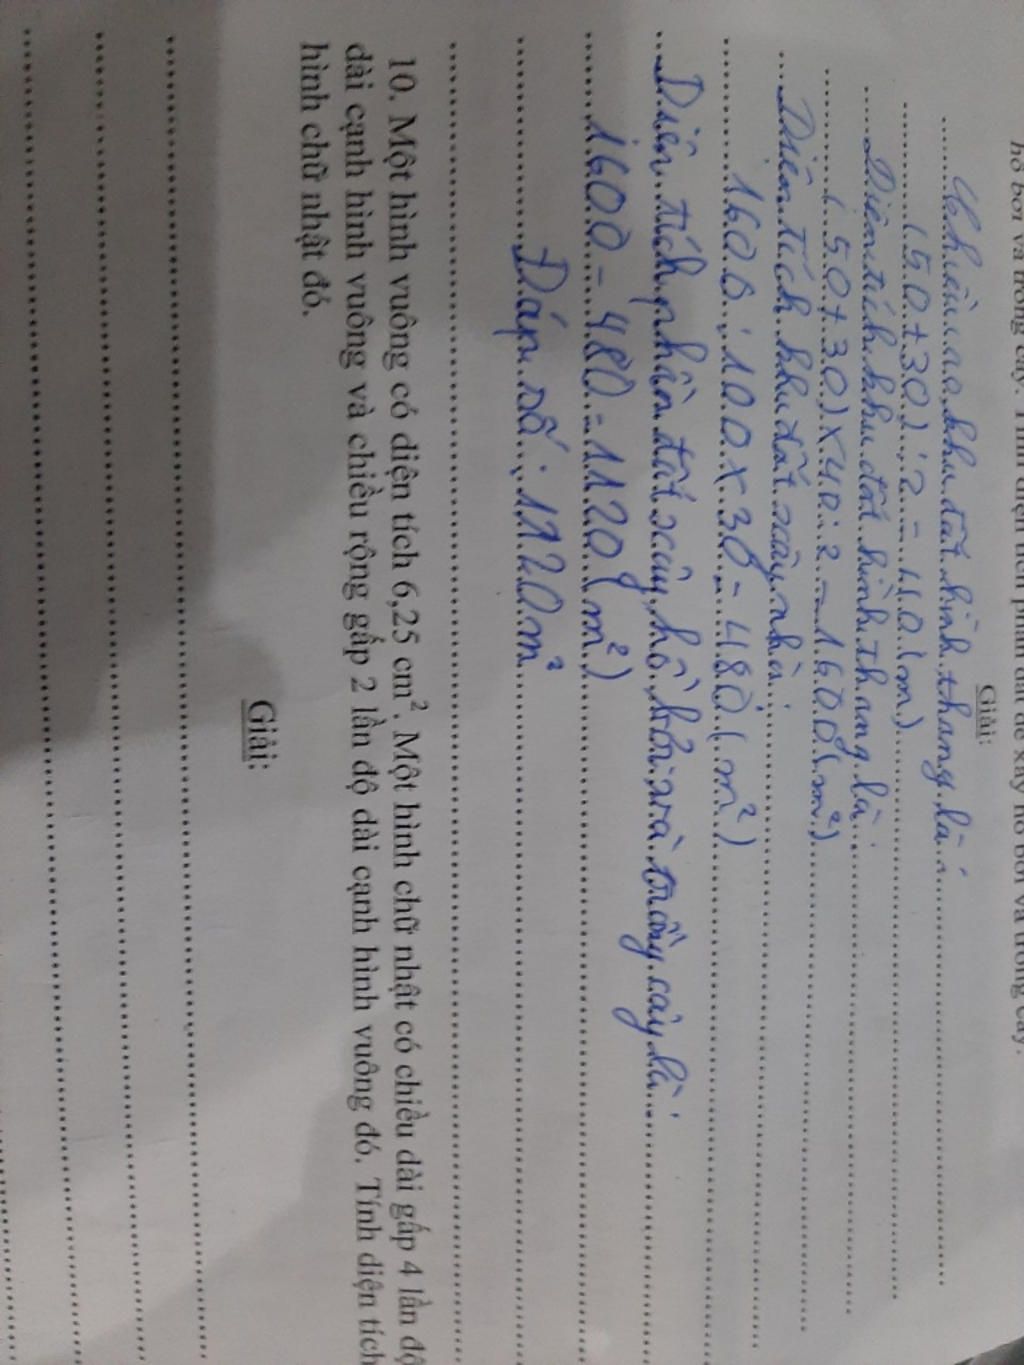 hồ bơi và trồng cây. Tính diện tích phần đất để xây hồ bơi và trồng cây.
Giải:
Chiều cao khu đất hình thang là:
(50+30):2=40(m)
Diện tích khu đất hình thang là:
(50+30)×40:2=1600(m²)
Diện tích khu đất xây nhà:
1600:100×30=480(m²)
Diện tích phần đất xây hồ bơi và trồng cây là:
1600-480=1120(m²)
Đáp số:1120m²
10. Một hình vuông có diện tích 6,25 cm². Một hình chữ nhật có chiều dài gấp 4 lần độ
dài cạnh hình vuông và chiều rộng gấp 2 lần độ dài cạnh hình vuông đó. Tính diện tích
hình chữ nhật đó.
Giải: